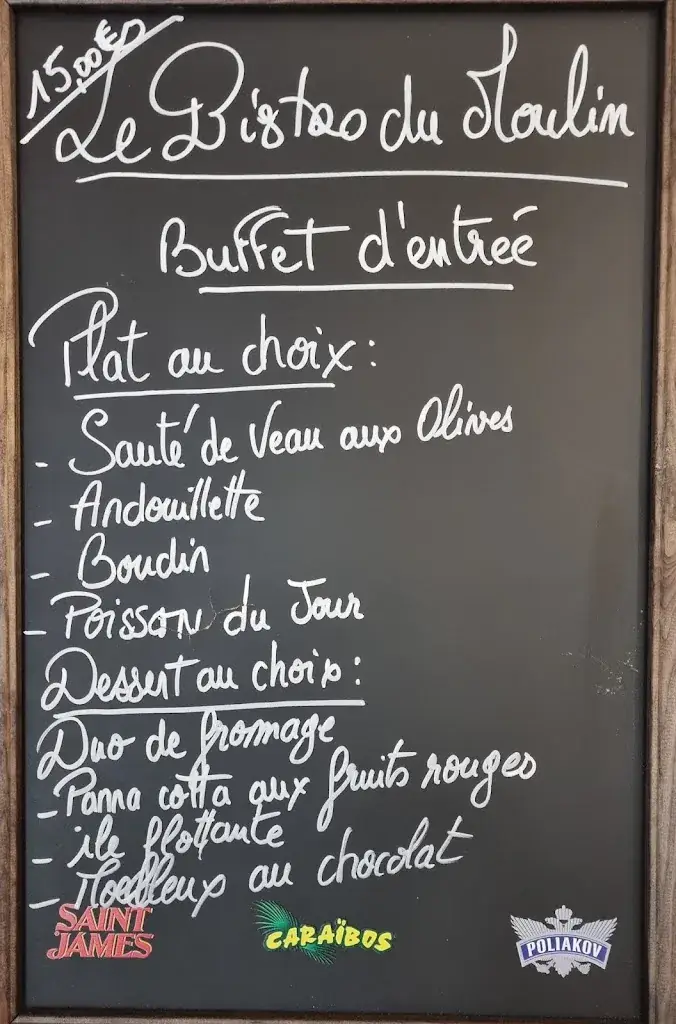 15,00€
Le Bistro du Moulin
Buffet d'entrée
Plat au choix :
- Sauté de Veau aux Olives
- Andouillette
- Boudin
- Poisson du Jour
Dessert au choix :
Duo de fromage
- Panna cotta aux fruits rouges
- île flottante
- Moelleux au chocolat
SAINT
JAMES
CARAÏBOS
POLIAKOV